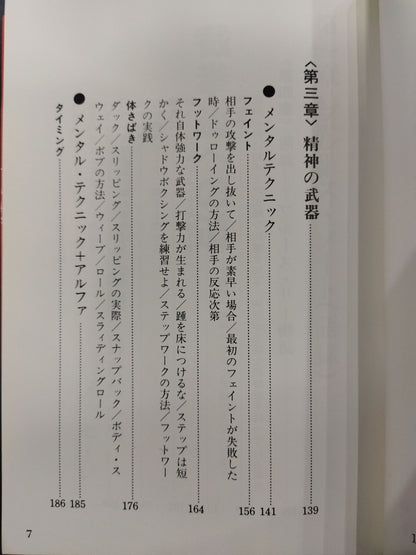 〈第三章〉精神の武器……139
●メンタルテクニック……141
フェイント……156
相手の攻撃を出し抜いて/相手が素早い場合/最初のフェイントが失敗した
時/ドゥローイングの方法/相手の反応次第
フットワーク……164
それ自体強力な武器/打撃力が生まれる/踵を床につけるな/ステップは短
かく/シャドウボクシングを練習せよ/ステップワークの方法/フットワー
クの実践
体さばき……176
ダック/スリッピング/スリッピングの実際/スナップバック/ボディ・ス
ウェイ/ボブの方法/ウィーブ/ロール/スライディングロール
●メンタル・テクニック+アルファ……185
タイミング……186
7
1